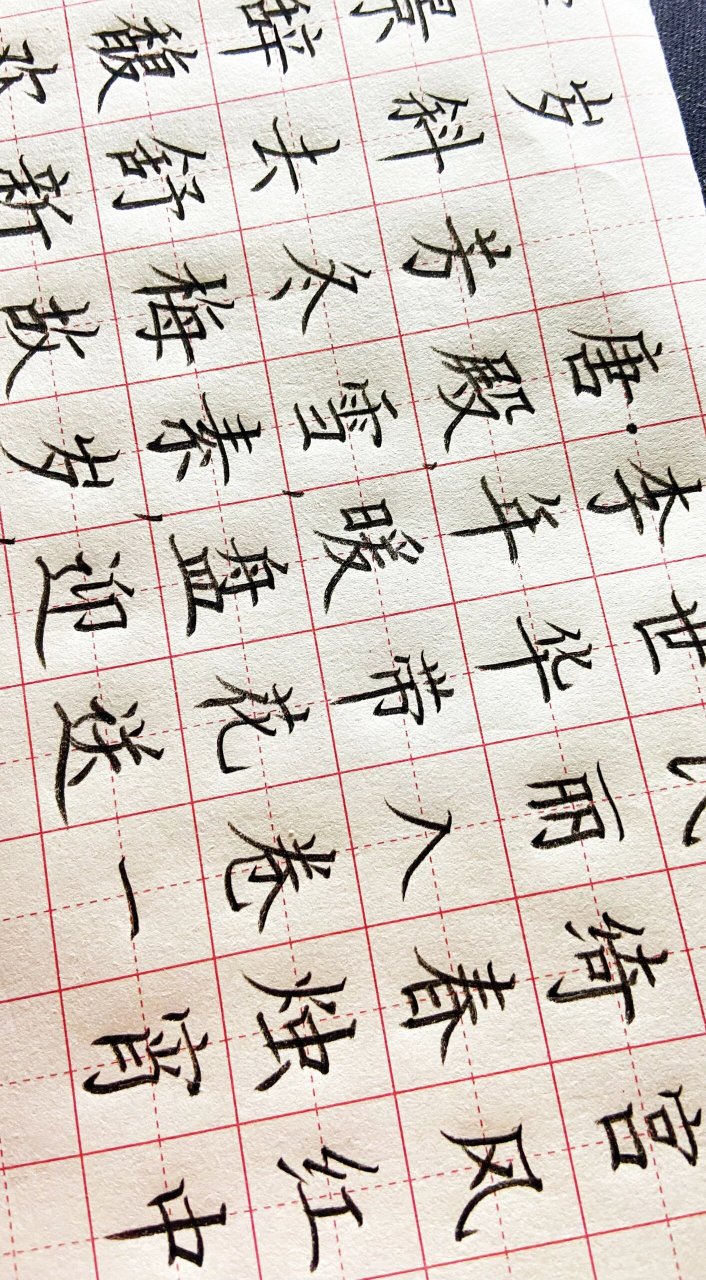 岁 唐·李世民
景斜芳殿,年华丽绮宫
辞去冬雪,暖带入春风
馥舒梅素,盘花卷烛红
欢新故岁,迎送一宵中